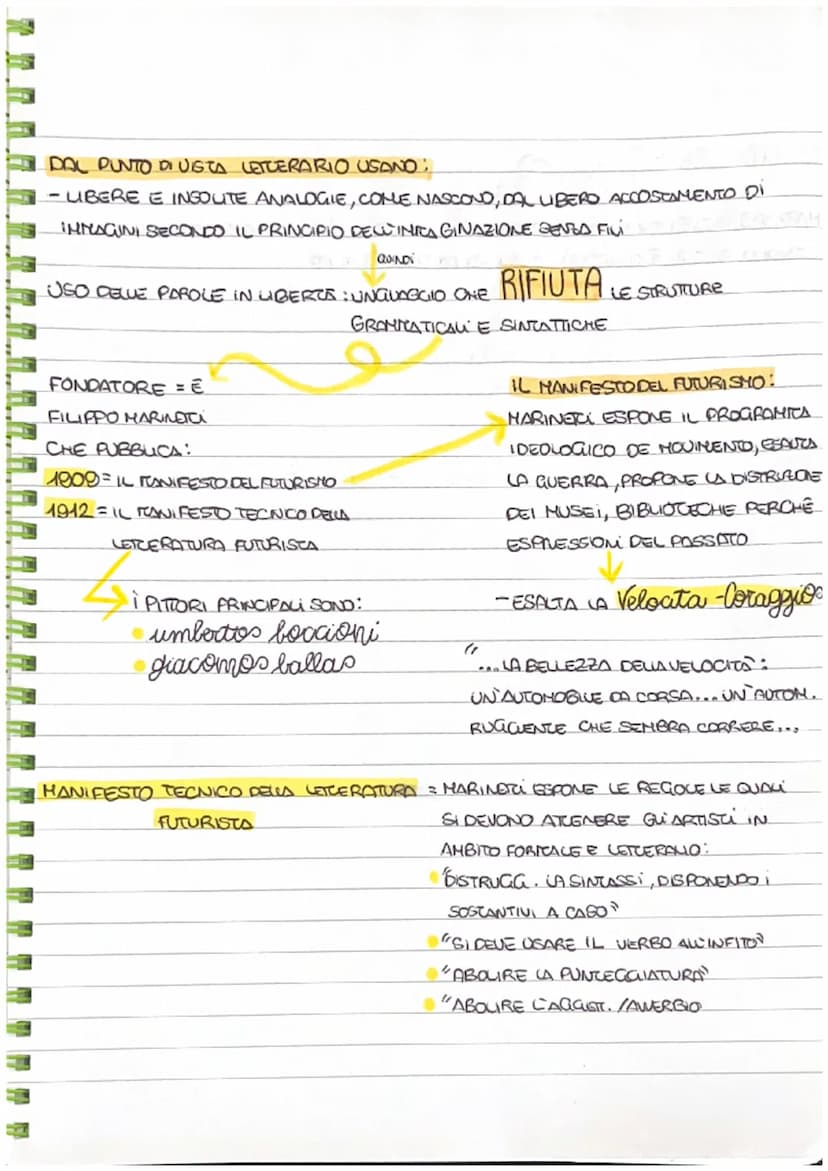 DAL PUNTO DI VISTA LETTERARIO USANO:
- LIBERE E INSOLITE ANALOGIE, COME NASCONO, DAL LIBERO ACCOSTAMENTO DI
IMMAGINI SECONDO IL PRINCIPIO DELL'IMMAGINAZIONE SENZA FILI
QUINDI
USO DELLE PAROLE IN LIBERTÀ: LINGUAGGIO CHE RIFIUTA LE STRUTTURE
GRAMMATICALI E SINTATTICHE
FONDATORE = È
FILIPPO MARINETTI
CHE PUBBLICA:
1909 = IL MANIFESTO DEL FUTURISMO
1912 = IL MANIFESTO TECNICO DELLA
LETTERATURA FUTURISTA
I PITTORI PRINCIPALI SONO:
umbertos boccioni
giacomos ballas
IL MANIFESTO DEL FUTURISMO:
MARINETTI ESPONE IL PROGRAMMA
IDEOLOGICO DE MOVIMENTO, ESALTA
LA GUERRA, PROPONE LA DISTRUZIONE
DEI MUSEI, BIBLIOTECHE PERCHÈ
ESPRESSIONI DEL PASSATO
- ESALTA LA Velocita - Coraggio
"...LA BELLEZZA DELLA VELOCITÀ:
UN'AUTOMOBILE DA CORSA... UN'AUTOM.
RUGGENTE CHE SEMBRA CORRERE...
MANIFESTO TECNICO DELLA LETTERATURA = MARINETTI ESPONE LE REGOLE LE QUALI
FUTURISTA SI DEVONO ATTENERE GLI ARTISTI IN
AMBITO FORMALE E LETTERARIO:
"DISTRUGG. LA SINTASSI, DISPONENDO I
SOSTANTIVI A CASO"
"SI DEVE USARE IL VERBO ALL'INFITO"
"ABOLIRE LA PUNTEGGIATURA"
"ABOLIRE L'AGGET. /AVVERBIO